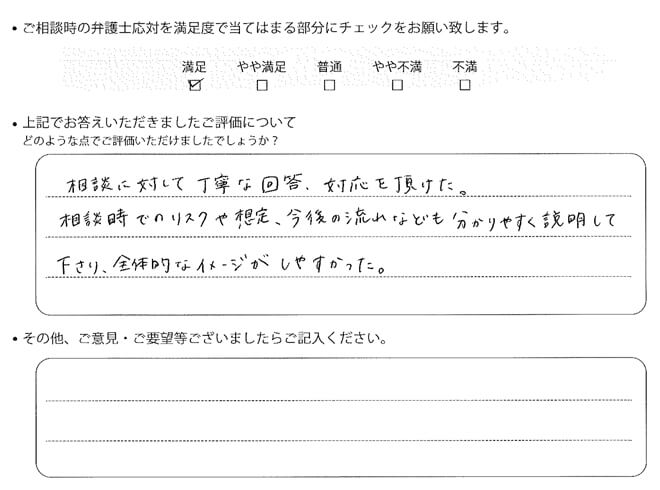 • ご相談時の弁護士応対を満足度で当てはまる部分にチェックをお願い致します。
満足 やや満足 普通 やや不満 不満
☑ □ □ □ □
• 上記でお答えいただきましたご評価について
どのような点でご評価いただけましたでしょうか？
相談に対して丁寧な回答、対応を頂けた。
相談時でのリスクや想定、今後の流れなども分かりやすく説明して
下さり、全体的なイメージがしやすかった。
• その他、ご意見・ご要望等ございましたらご記入ください。